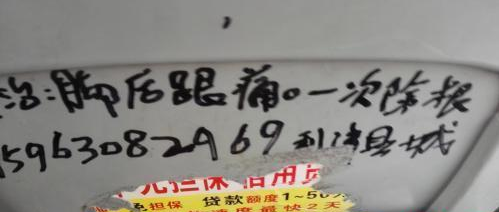 治:脚后跟痛。一次除根
5963082969利津县城
元担保 信用贷
免担保 贷款额度1~50万
速度最快2天